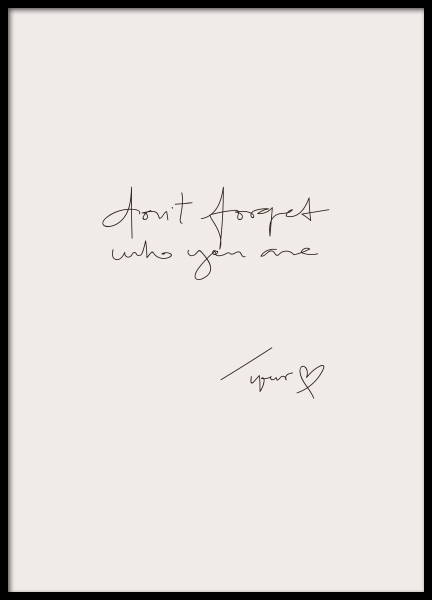 don't forget
who you are
/ your ♡